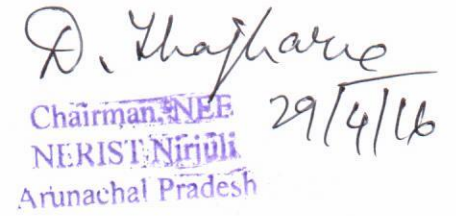 D.
29/4/16
Chairman, NEE
NERIST, Nirjuli
Arunachal Pradesh